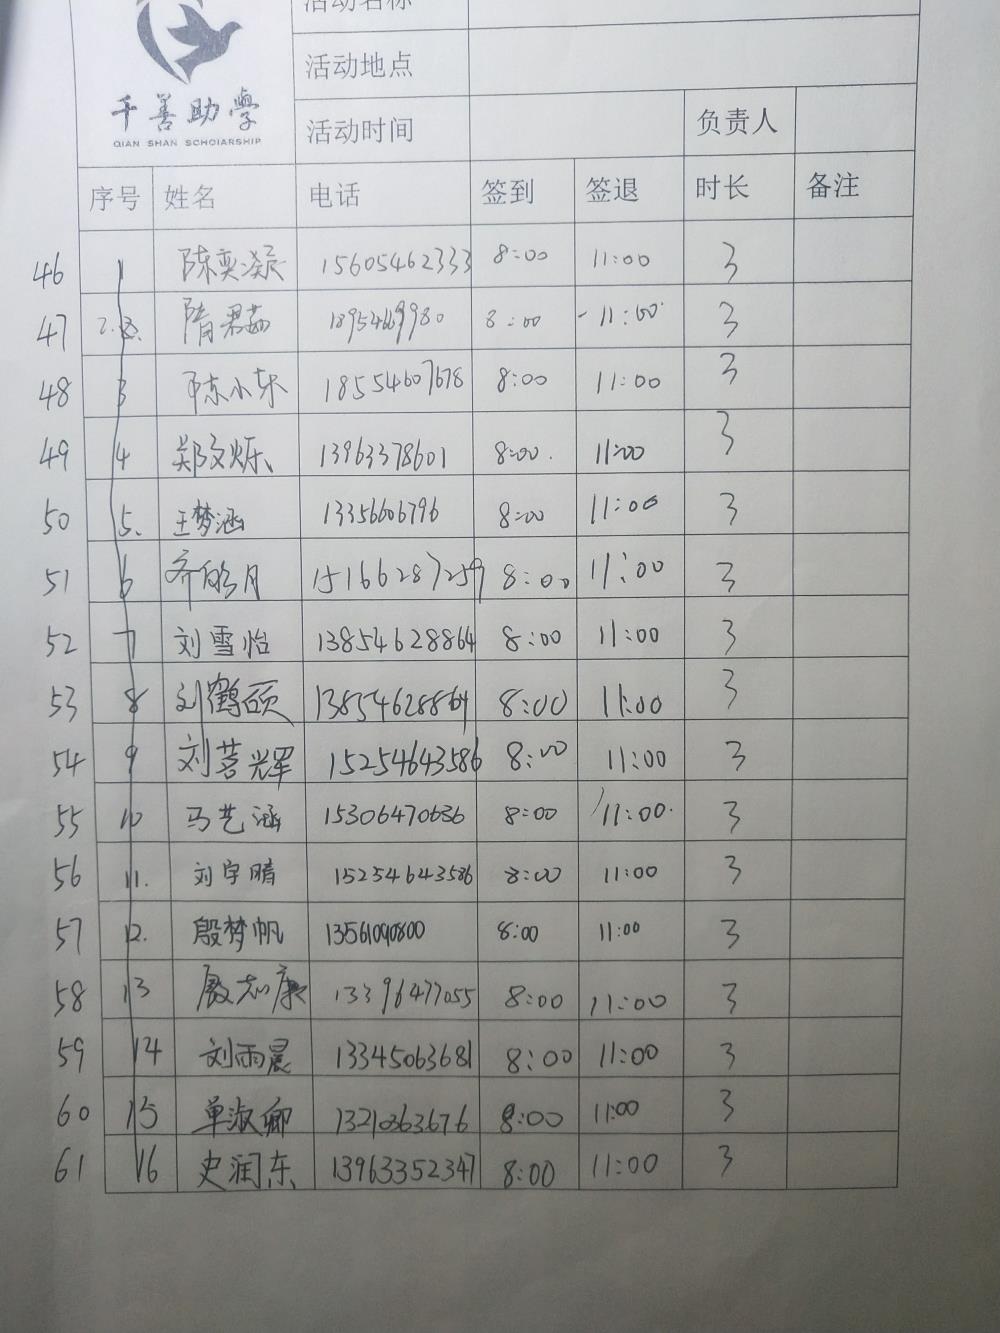 活动名称
活动地点
千善助学
QIAN SHAN SCHOlARSHIP
活动时间 负责人
序号 姓名 电话 签到 签退 时长 备注
46 1 陈奕凝 15605462333 8:00 11:00 3
47 2. 隋君茹 8:00 11:00 3
48 3 陈小东 18554607678 8:00 11:00 3
49 4 郑文烁 13963378601 8:00. 11:00 3
50 5. 王梦涵 13356606796 8:00 11:00 3
51 6 齐皓月 15166287259 8:00 11:00 3
52 7 刘雪怡 13854628864 8:00 11:00 3
53 8 刘鹤硕 13854628864 8:00 11:00 3
54 9 刘茗辉 15254643586 8:00 11:00 3
55 10 马艺涵 15306470636 8:00 11:00. 3
56 11. 刘宇晴 15254643586 8:00 11:00 3
57 12. 殷梦帆 13561090800 8:00 11:00 3
58 13 殷志康 13396477055 8:00 11:00 3
59 14 刘雨晨 13345063681 8:00 11:00 3
60 15 单淑卿 13210363676 8:00 11:00 3
61 16 史润东 13963352347 8:00 11:00 3